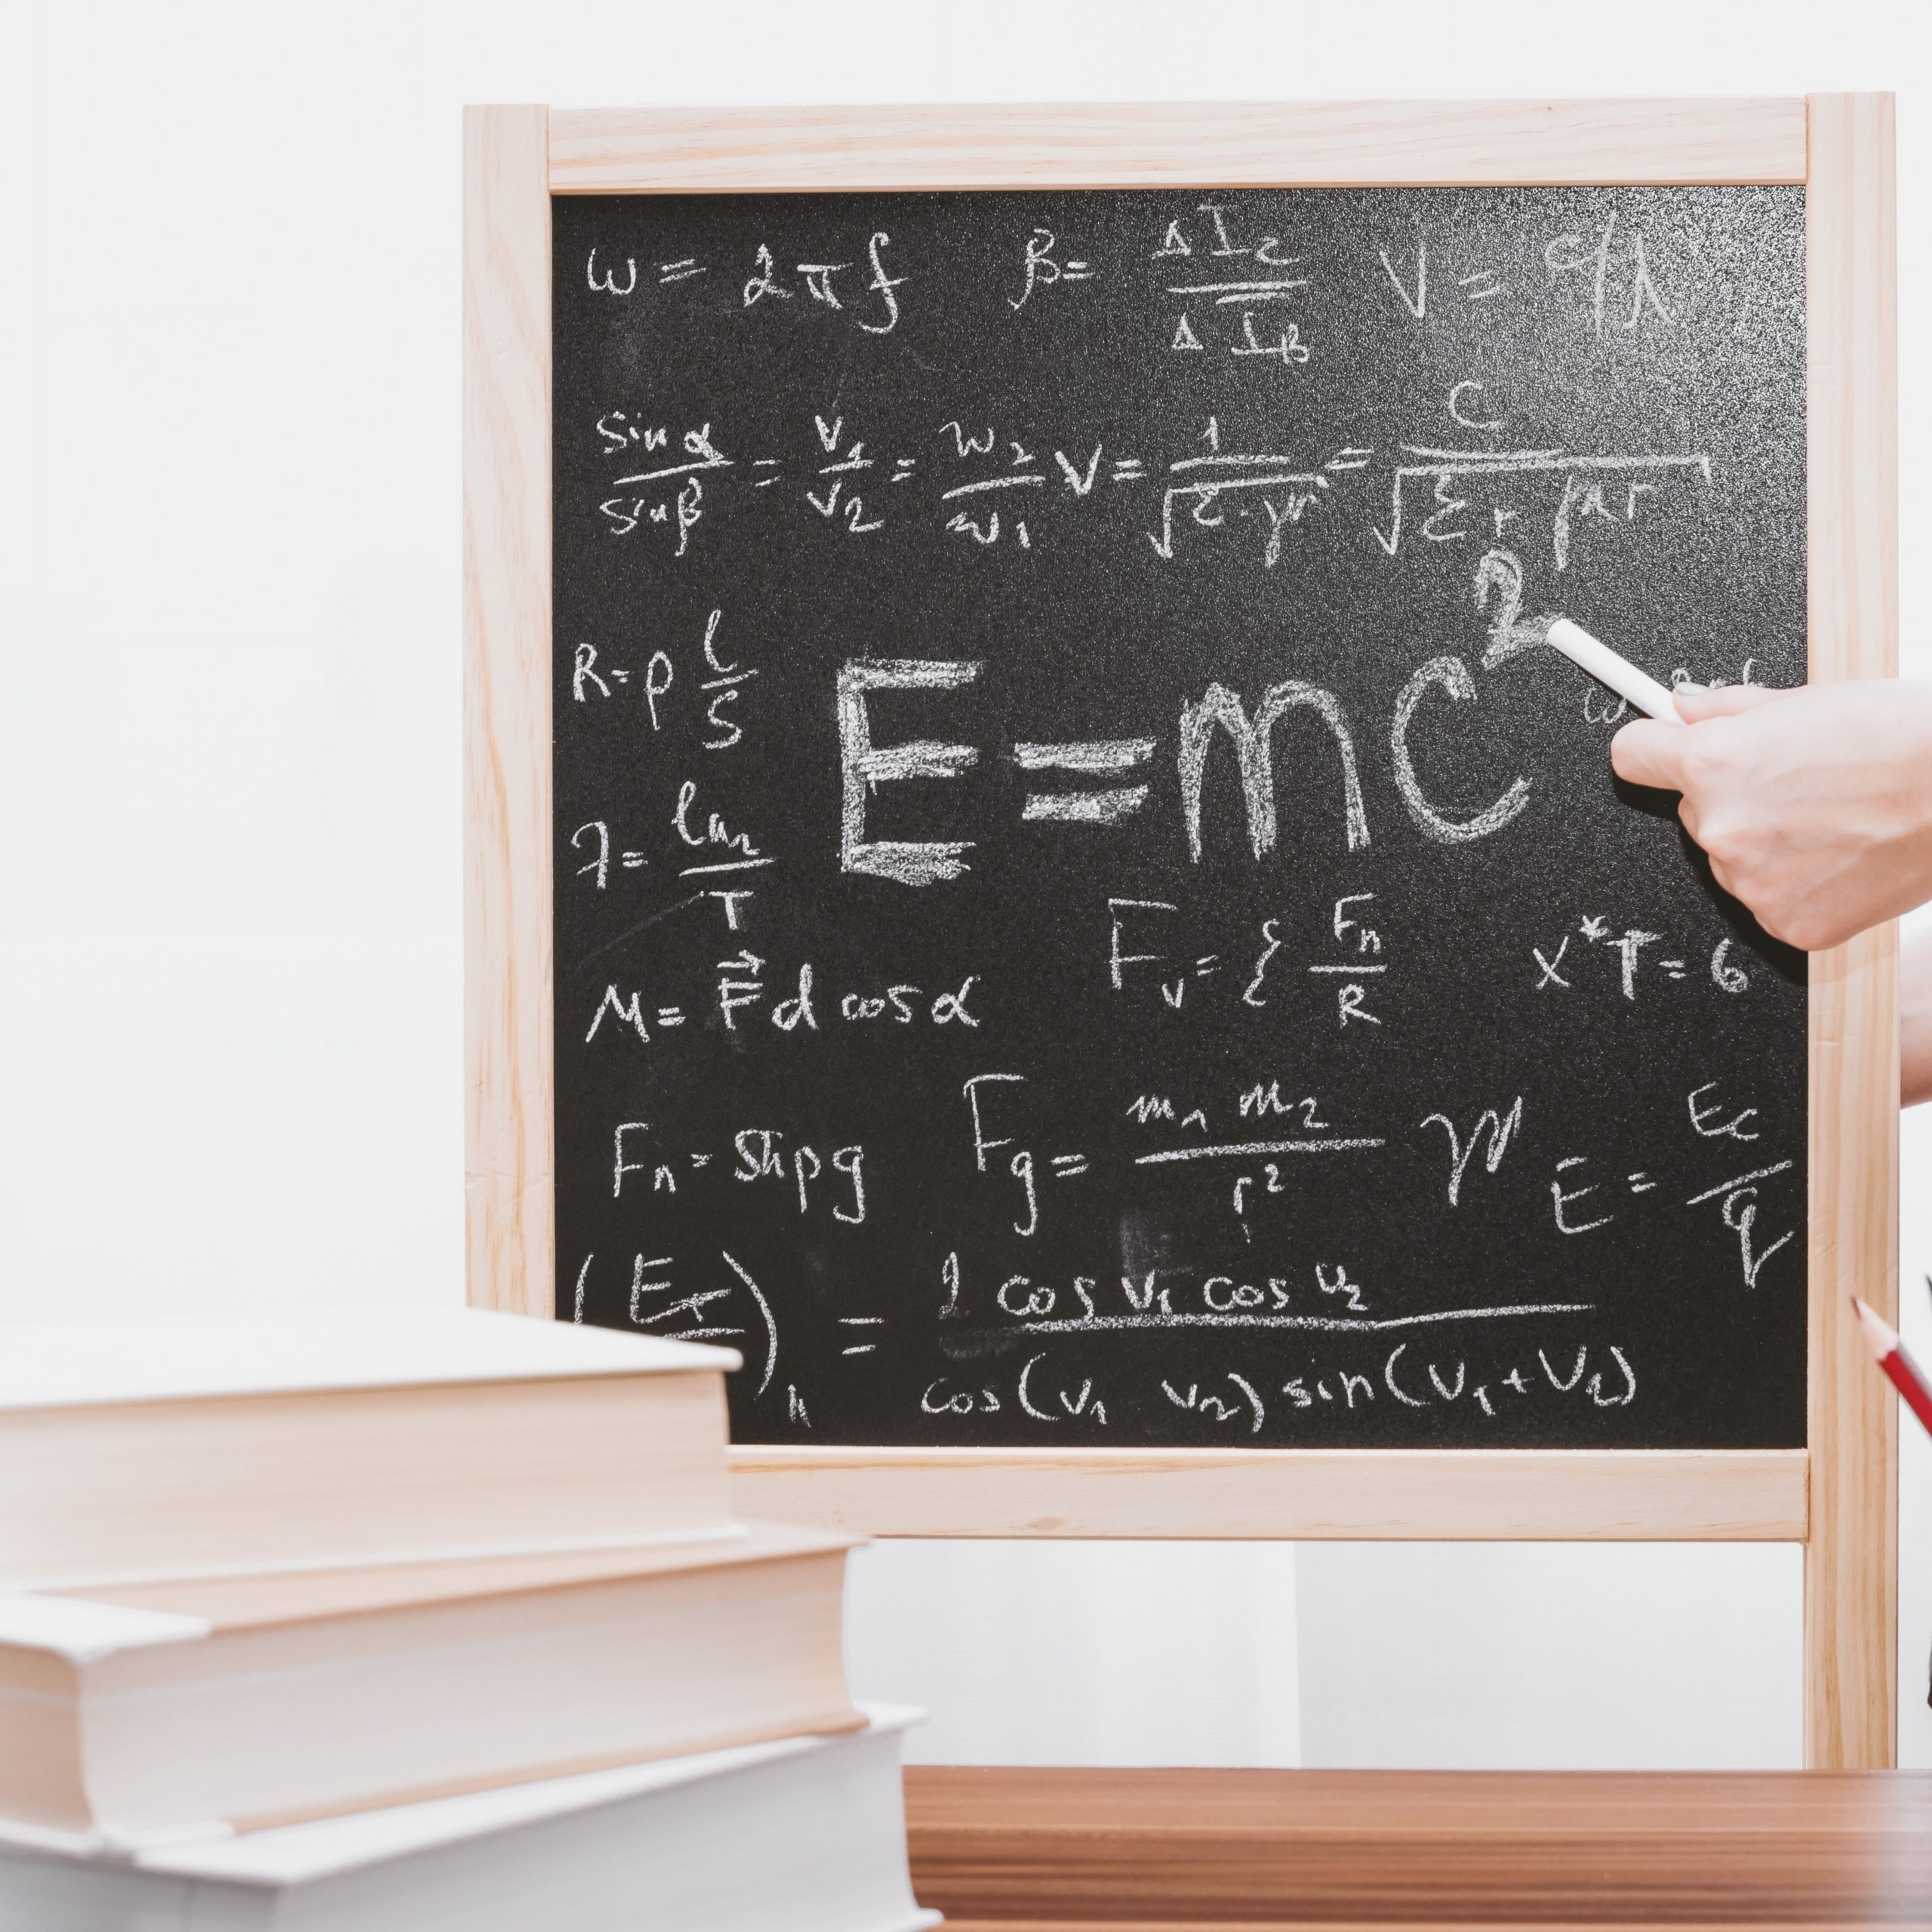 ω = 2πf β = ΔI_C / ΔI_B V = c/λ
sin α / sin β = v₁/v₂ = w₂/w₁ V = 1/√(ε·μ) = C/√(ε_r μ_r)
R = ρ l/S
E = mc²
λ = ln₂/T
F_v = ξ F_n/R x*T = 6
M = F⃗ d cos α
F_n = Shρg F_g = m₁ m₂ / r² E = E_c/q
(E_T)₁₁ = 2 cos v₁ cos v₂ / cos(v₁ v₂) sin(v₁+v₂)